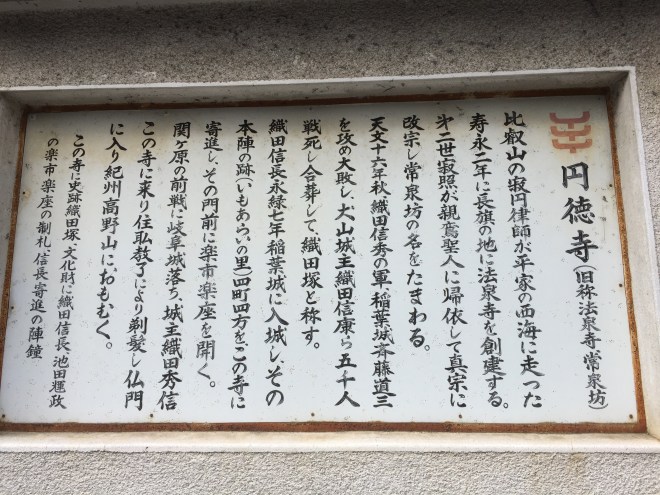 円徳寺（旧称法泉寺常泉坊）
比叡山の寂円律師が平家の西海に走った
寿永二年に長旗の地に法泉寺を創建する。
第二世寂照が親鸞聖人に帰依して真宗に
改宗し常泉坊の名をたまわる。
天文十六年秋、織田信秀の軍、稲葉城斉藤道三
を攻め大敗し、犬山城主織田信康ら五千人
戦死し合葬して、織田塚と称す。
織田信長永緑七年稲葉城に入城し、その
本陣の跡（いもあらいの里）四町四方をこの寺に
寄進し、その門前に楽市楽座を開く。
関ヶ原の前戦に岐阜城落ち、城主織田秀信
この寺に来り住职教了により剃髪し仏門
に入り紀州高野山に、おもむく。
この寺に史跡織田塚、文化財に織田信長、池田輝政
の楽市楽座の制札、信長寄進の陣鐘